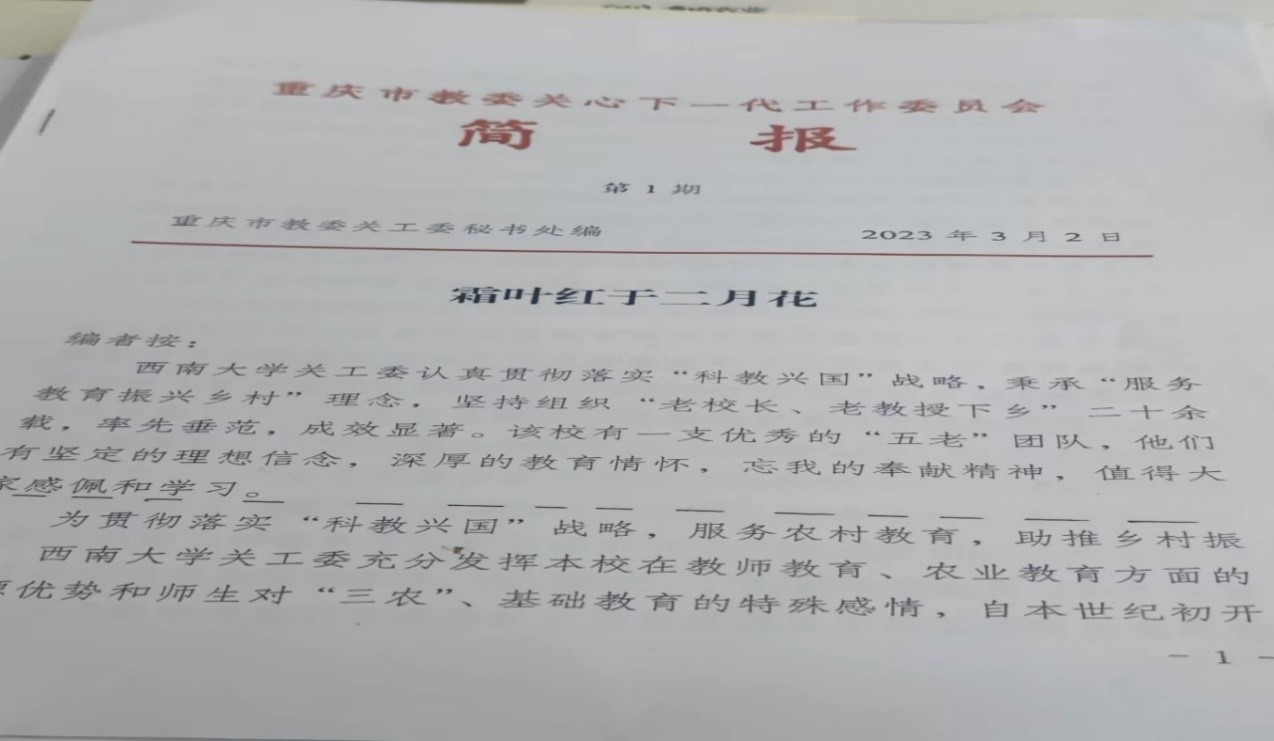 重庆市教委关心下一代工作委员会
简 报
第 1 期
重庆市教委关工委秘书处编 2023 年 3 月 2 日
霜叶红于二月花
编者按：
西南大学关工委认真贯彻落实“科教兴国”战略，秉承“服务
教育振兴乡村”理念，坚持组织“老校长、老教授下乡”二十余
载，率先垂范，成效显著。该校有一支优秀的“五老”团队，他们
有坚定的理想信念，深厚的教育情怀，忘我的奉献精神，值得大
家感佩和学习。
为贯彻落实“科教兴国”战略，服务农村教育，助推乡村振
西南大学关工委充分发挥本校在教师教育、农业教育方面的
优势和师生对“三农”、基础教育的特殊感情，自本世纪初开
- 1 -